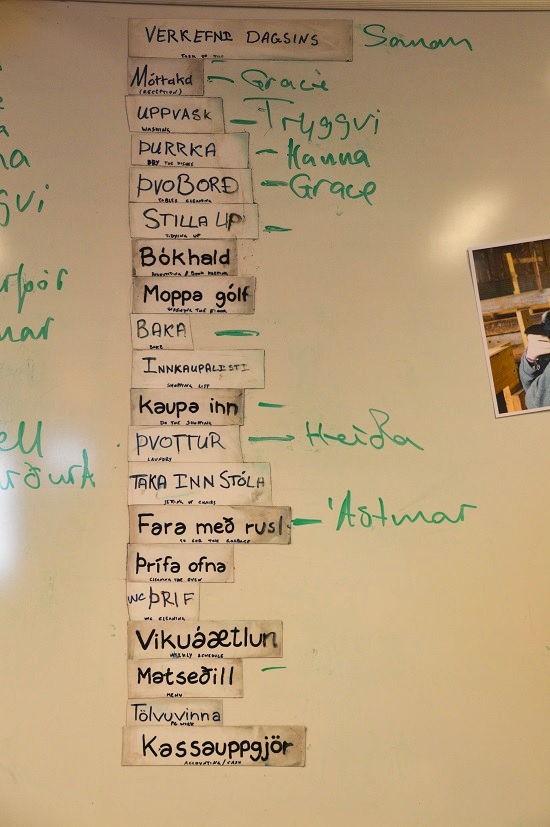 VERKEFNI DAGSINS
Móttaka – Gracie
(RECEPTION)
UPPVASK – Tryggvi
WASHING
ÞURRKA – Hanna
DRY THE DISHES
ÞVO BORÐ – Grace
TABLES CLEANING
STILLA UPP –
TIDYING UP
Bókhald
ACCOUNTING / BOOK KEEPING
Moppa gólf
WASHING THE FLOOR
BAKA –
BAKE
INNKAUPALISTI
SHOPPING LIST
Kaupa inn –
DO THE SHOPPING
ÞVOTTUR – Heiða
LAUNDRY
TAKA INN STÓLA
Fara með rusl – Aðtmar
GARBAGE
Þrífa ofna
CLEANING THE OVEN
WC ÞRIF
WC CLEANING
Vikuáætlun
WEEKLY SCHEDULE
Matseðill –
MENU
Tölvuvinna
PC WORK
Kassauppgjör
ACCOUNTING / CASH